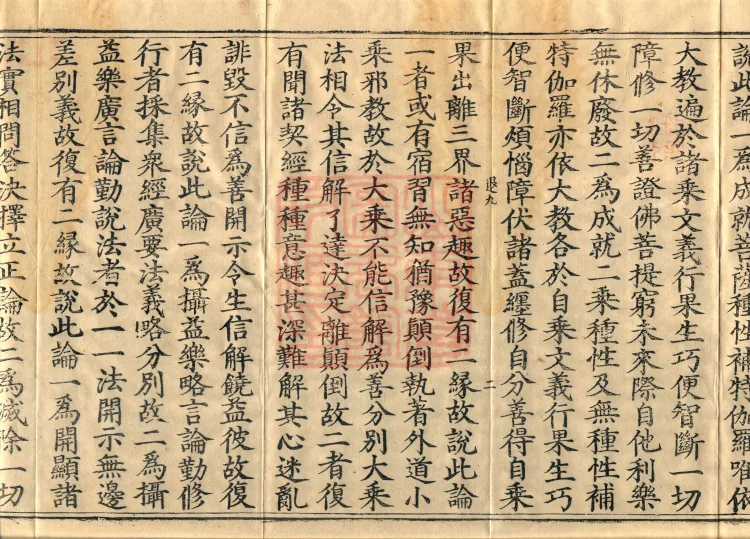 說此論一爲成就菩薩種性補特伽羅唯依
大教遍於諸乘文義行果生巧便智斷一切
障修一切善證佛菩提窮未來際自他利樂
無休廢故二爲成就二乘種性及無種性補
特伽羅亦依大教各於自乘文義行果生巧
便智斷煩惱障伏諸蓋纏修自分善得自乘
退九
二
果出離三界諸惡趣故復有二緣故說此論
一者或有宿習無知猶豫顛倒執著外道小
乘邪教故於大乘不能信解爲善分別大乘
法相令其信解了達決定離顛倒故二者復
有聞諸契經種種意趣甚深難解其心迷亂
誹毀不信爲善開示令生信解饒益彼故復
有二緣故說此論一爲攝益樂略言論勤修
行者採集衆經廣要法義略分別故二爲攝
益樂廣言論勤說法者於一一法開示無邊
差別義故復有二緣故說此論一爲開顯諸
法實相問答決擇立正論故二爲滅除一切